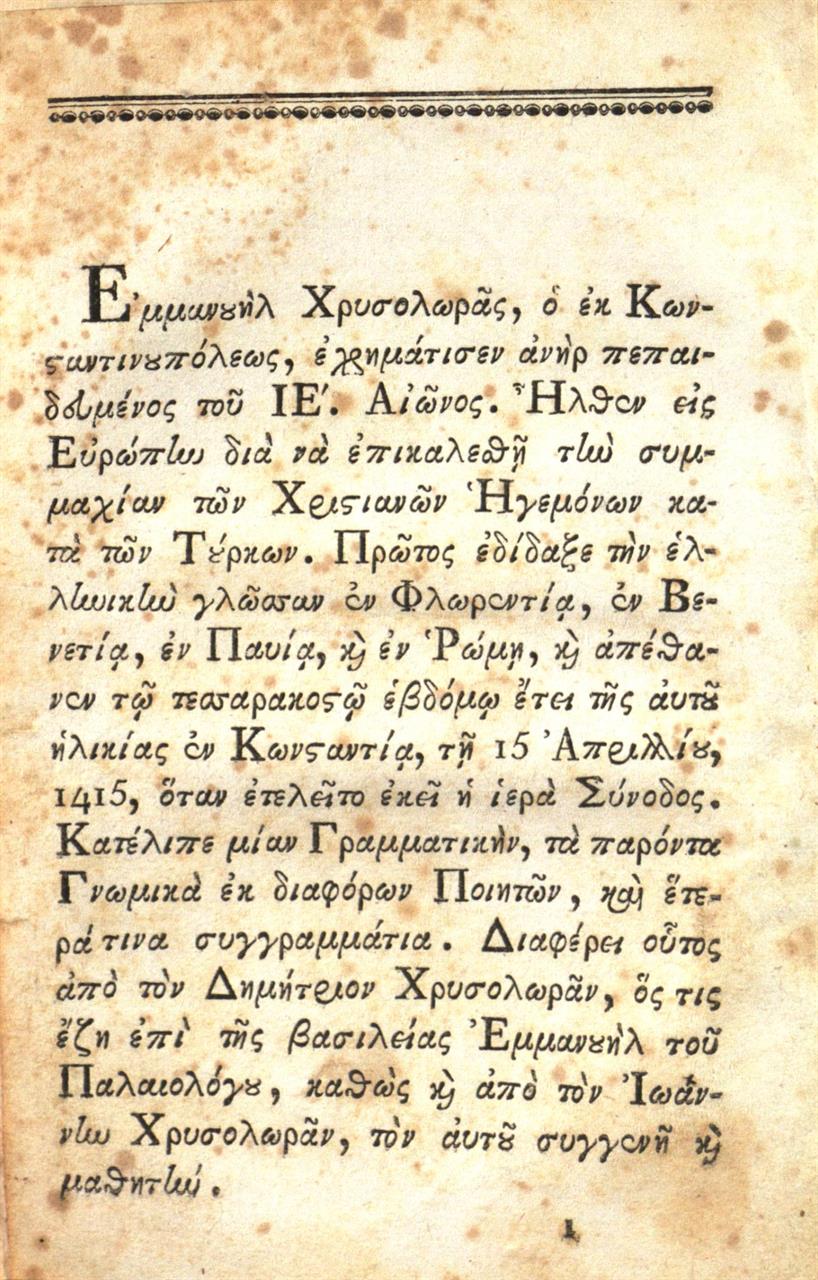 Ἐμμανουὴλ Χρυσολωρᾶς, ὁ ἐκ Κων-
σταντινουπόλεως, ἐχρημάτισεν ἀνὴρ πεπαι-
δευμένος τοῦ ΙΕ΄. Αἰῶνος. Ἦλθεν εἰς
Εὐρώπην διὰ νὰ ἐπικαλεσθῇ τὴν συμ-
μαχίαν τῶν Χριστιανῶν Ἡγεμόνων κα-
τὰ τῶν Τούρκων. Πρῶτος ἐδίδαξε τὴν ἑλ-
ληνικὴν γλῶσσαν ἐν Φλωρεντίᾳ, ἐν Βε-
νετίᾳ, ἐν Παυίᾳ, καὶ ἐν Ῥώμῃ, καὶ ἀπέθα-
νεν τῷ τεσσαρακοστῷ ἑβδόμῳ ἔτει τῆς αὑτοῦ
ἡλικίας ἐν Κωνσταντίᾳ, τῇ 15 Ἀπριλλίου,
1415, ὅταν ἐτελεῖτο ἐκεῖ ἡ ἱερὰ Σύνοδος.
Κατέλιπε μίαν Γραμματικὴν, τὰ παρόντα
Γνωμικὰ ἐκ διαφόρων Ποιητῶν, καὶ ἕτε-
ρά τινα συγγραμμάτια. Διαφέρει οὗτος
ἀπὸ τὸν Δημήτριον Χρυσολωρᾶν, ὅς τις
ἔζη ἐπὶ τῆς βασιλείας Ἐμμανουὴλ τοῦ
Παλαιολόγου, καθὼς καὶ ἀπὸ τὸν Ἰωάν-
νην Χρυσολωρᾶν, τὸν αὑτοῦ συγγενῆ καὶ
μαθητήν.
1